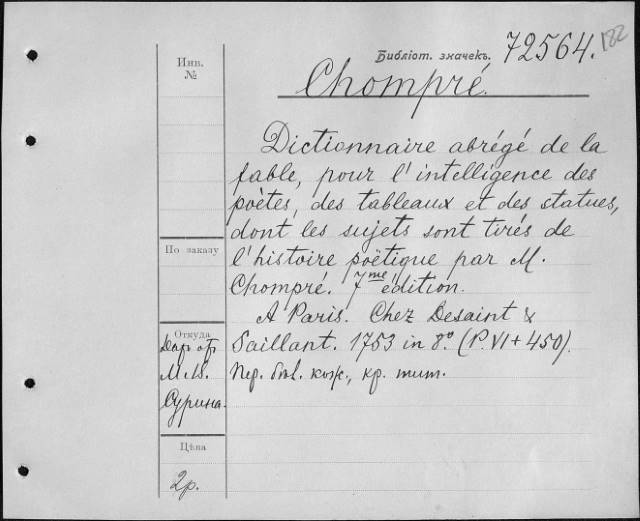 182
Библіот. значекъ. 72564.
Инв.
№
Chompré.
Dictionnaire abrégé de la
fable, pour l'intelligence des
poètes, des tableaux et des statues,
dont les sujets sont tirés de
По заказу
l'histoire poëtique par M.
Chompré. 7me édition.
A Paris. Chez Desaint &
Откуда
Даръ отъ
Saillant. 1753 in 8º. (P. VI + 450).
М. М.
Пер. бѣл. кож., кр. тит.
Сурина.
Цѣна
2р.